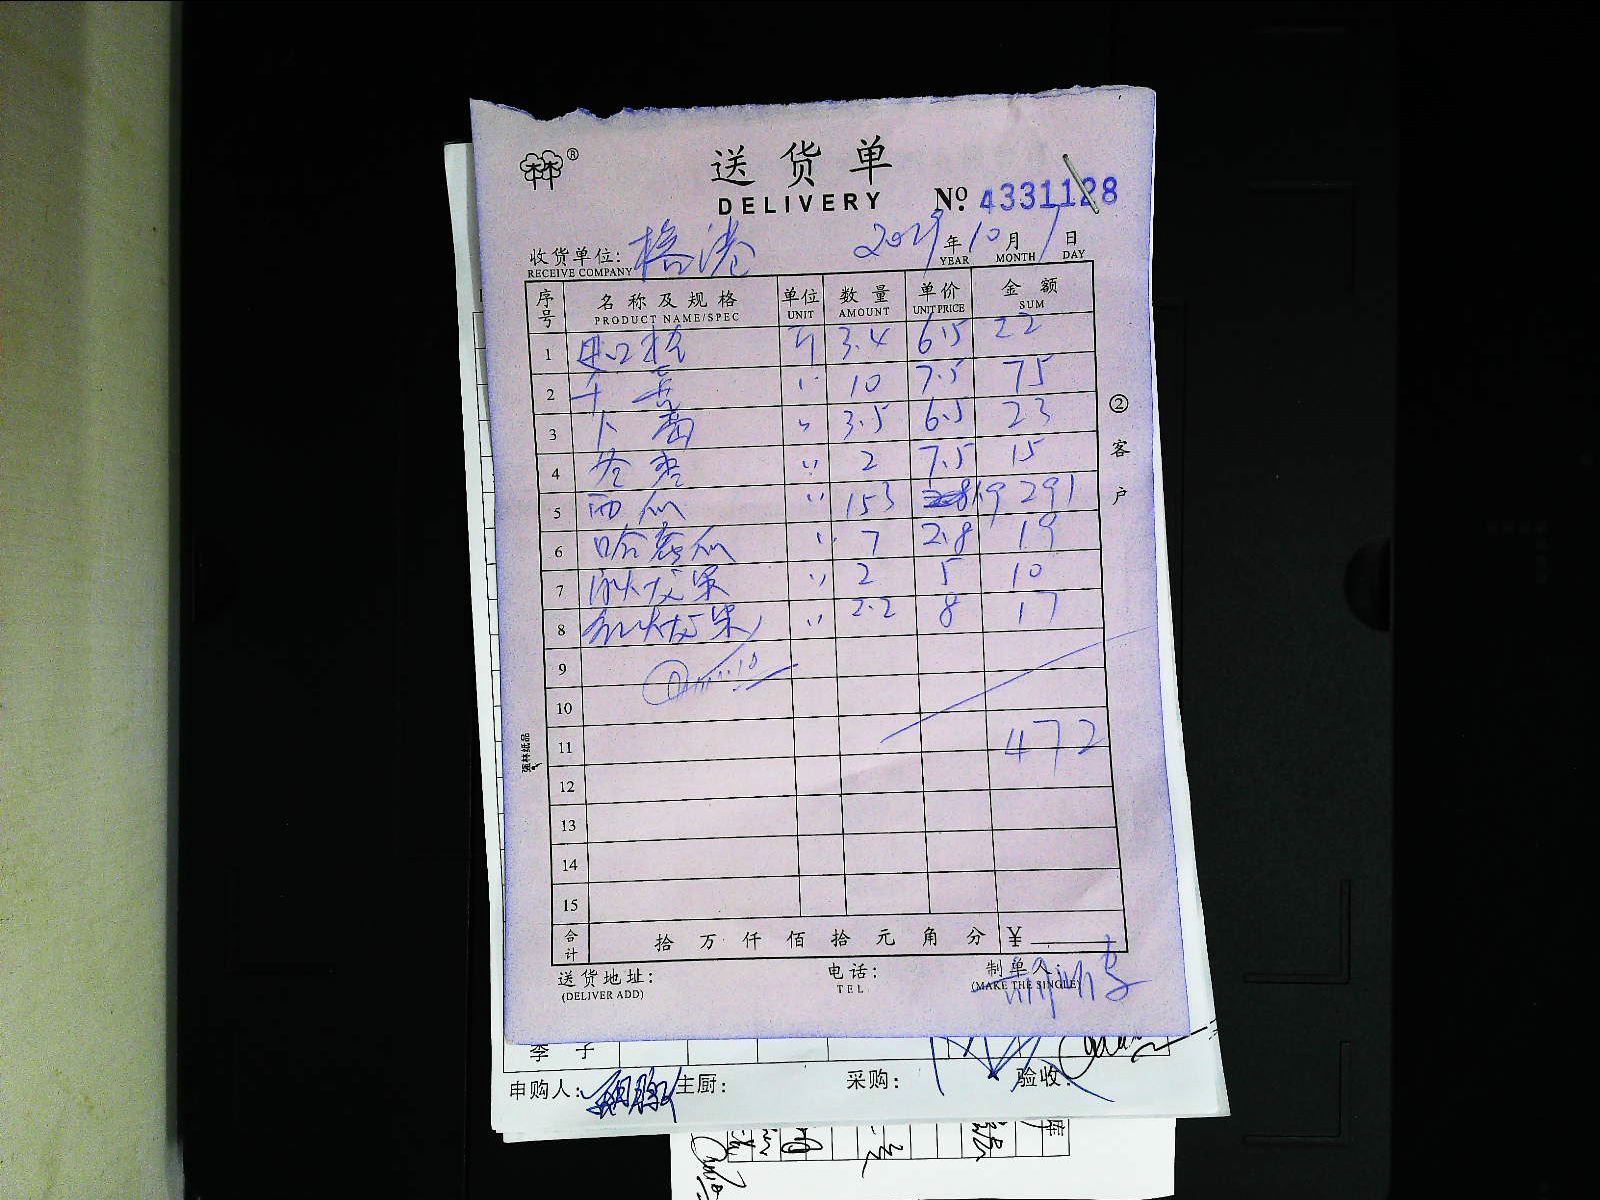 送货单
DELIVERY
№ 4331128
收货单位: 榕港 年 10 月 1 日
RECEIVE COMPANY YEAR MONTH DAY
序号 名称及规格 单位 数量 单价 金额
PRODUCT NAME/SPEC UNIT AMOUNT UNIT PRICE SUM
1 斤 3.4 6.5 22
2 〃 10 7.5 75
3 〃 3.5 6.5 23
4 冬枣 〃 2 7.5 15
5 西瓜 〃 153 1.9 291
6 哈密瓜 〃 7 2.8 19
7 火龙果 〃 2 5 10
8 红火龙果 〃 2.2 8 17
9
10
11 472
12
13
14
15
合计 拾 万 仟 佰 拾 元 角 分 ¥
送货地址: 电话: 制单人:
(DELIVER ADD) TEL (MAKE THE SINGLE)
② 客户
强林纸品
李子
申购人: 主厨: 采购: 验收: